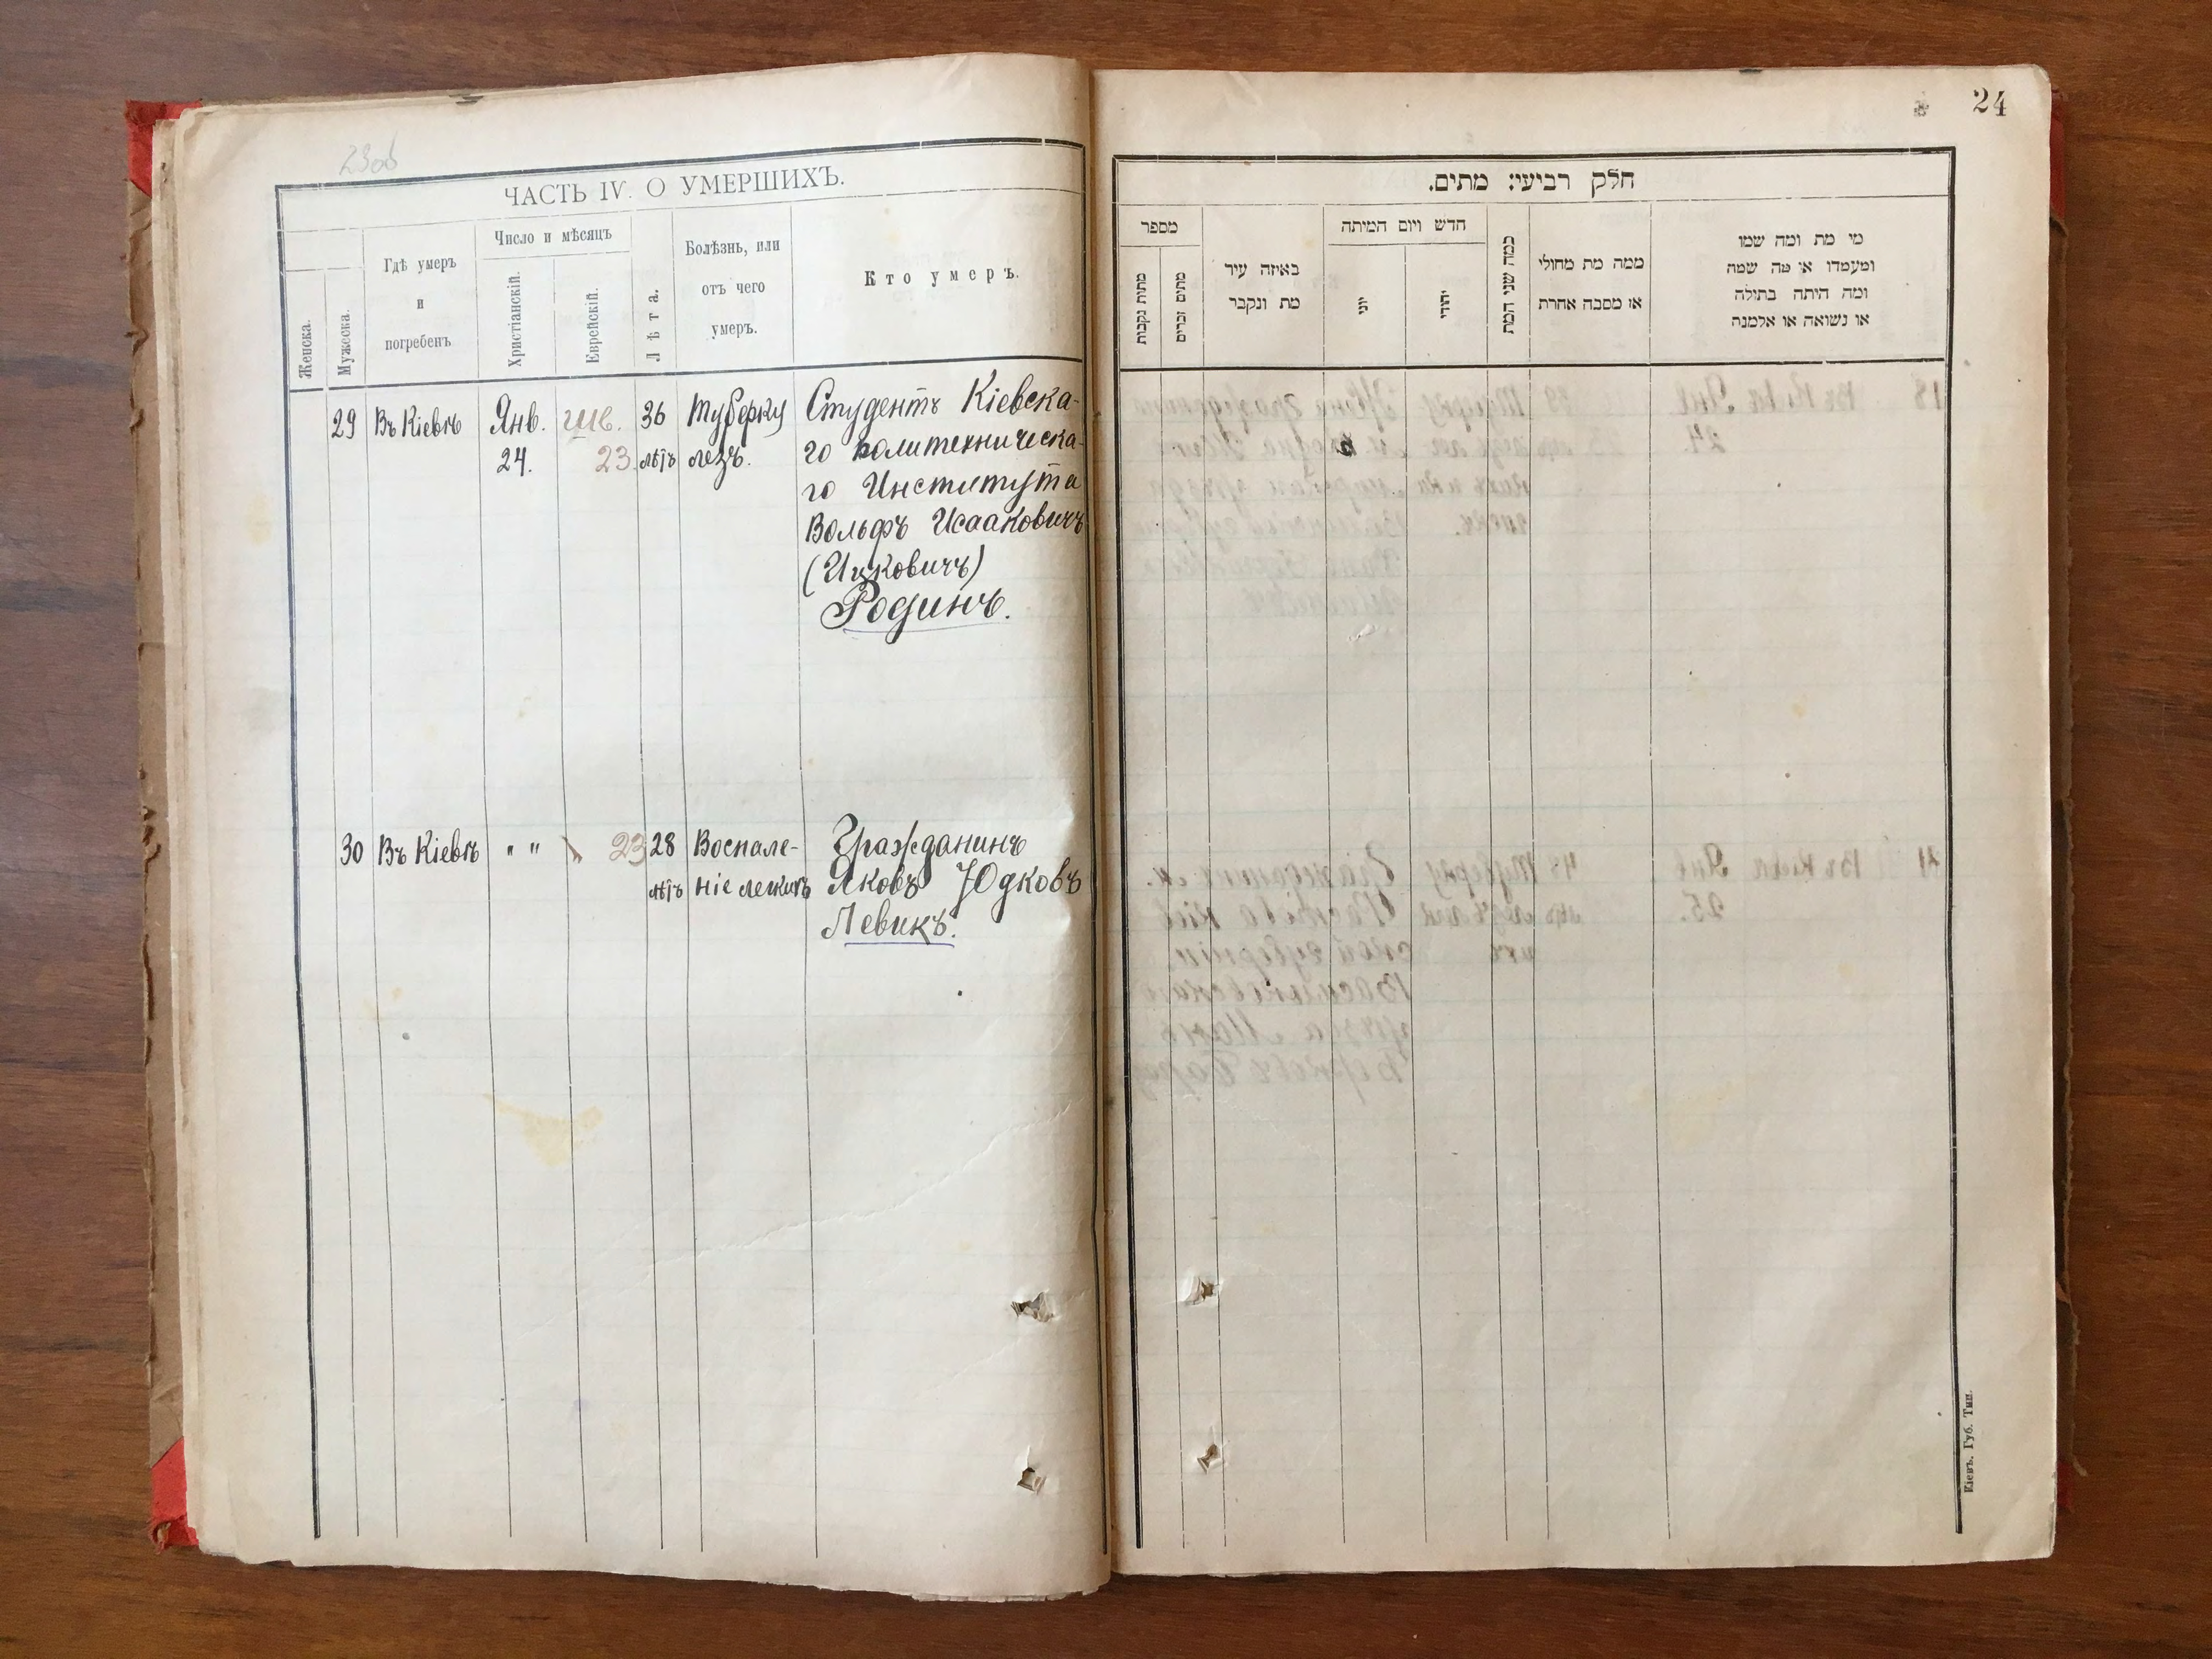 23об
ЧАСТЬ IV. О УМЕРШИХЪ.
Женска.
Мужеска.
Гдѣ умеръ
и
погребенъ
Число и мѣсяцъ
Христіанскій.
Еврейскій.
Лѣта.
Болѣзнь, или
отъ чего
умеръ.
Кто умеръ.
29 Въ Кіевѣ Янв. шв. 36 Туберку Студентъ Кіевска-
24. 23 лѣтъ лезъ. го политехническа-
го Института
Вольфъ Исааковичъ
(Ицковичъ)
Родинъ.
30 Въ Кіевѣ " " 23 28 Воспале- Гражданинъ
лѣтъ ніе легкихъ Яковъ Юдковъ
Левикъ.
24
חלק רביעי: מתים.
מספר
מתות נקבות
מתים זכרים
באיזה עיר
מת ונקבר
חדש ויום המיתה
יוני
יהודי
כמה שני המת
ממה מת מחולי
או מסבה אחרת
מי מת ומה שמו
ומעמדו או מה שמה
ומה היתה בתולה
או נשואה או אלמנה
Кіевъ. Губ. Тип.